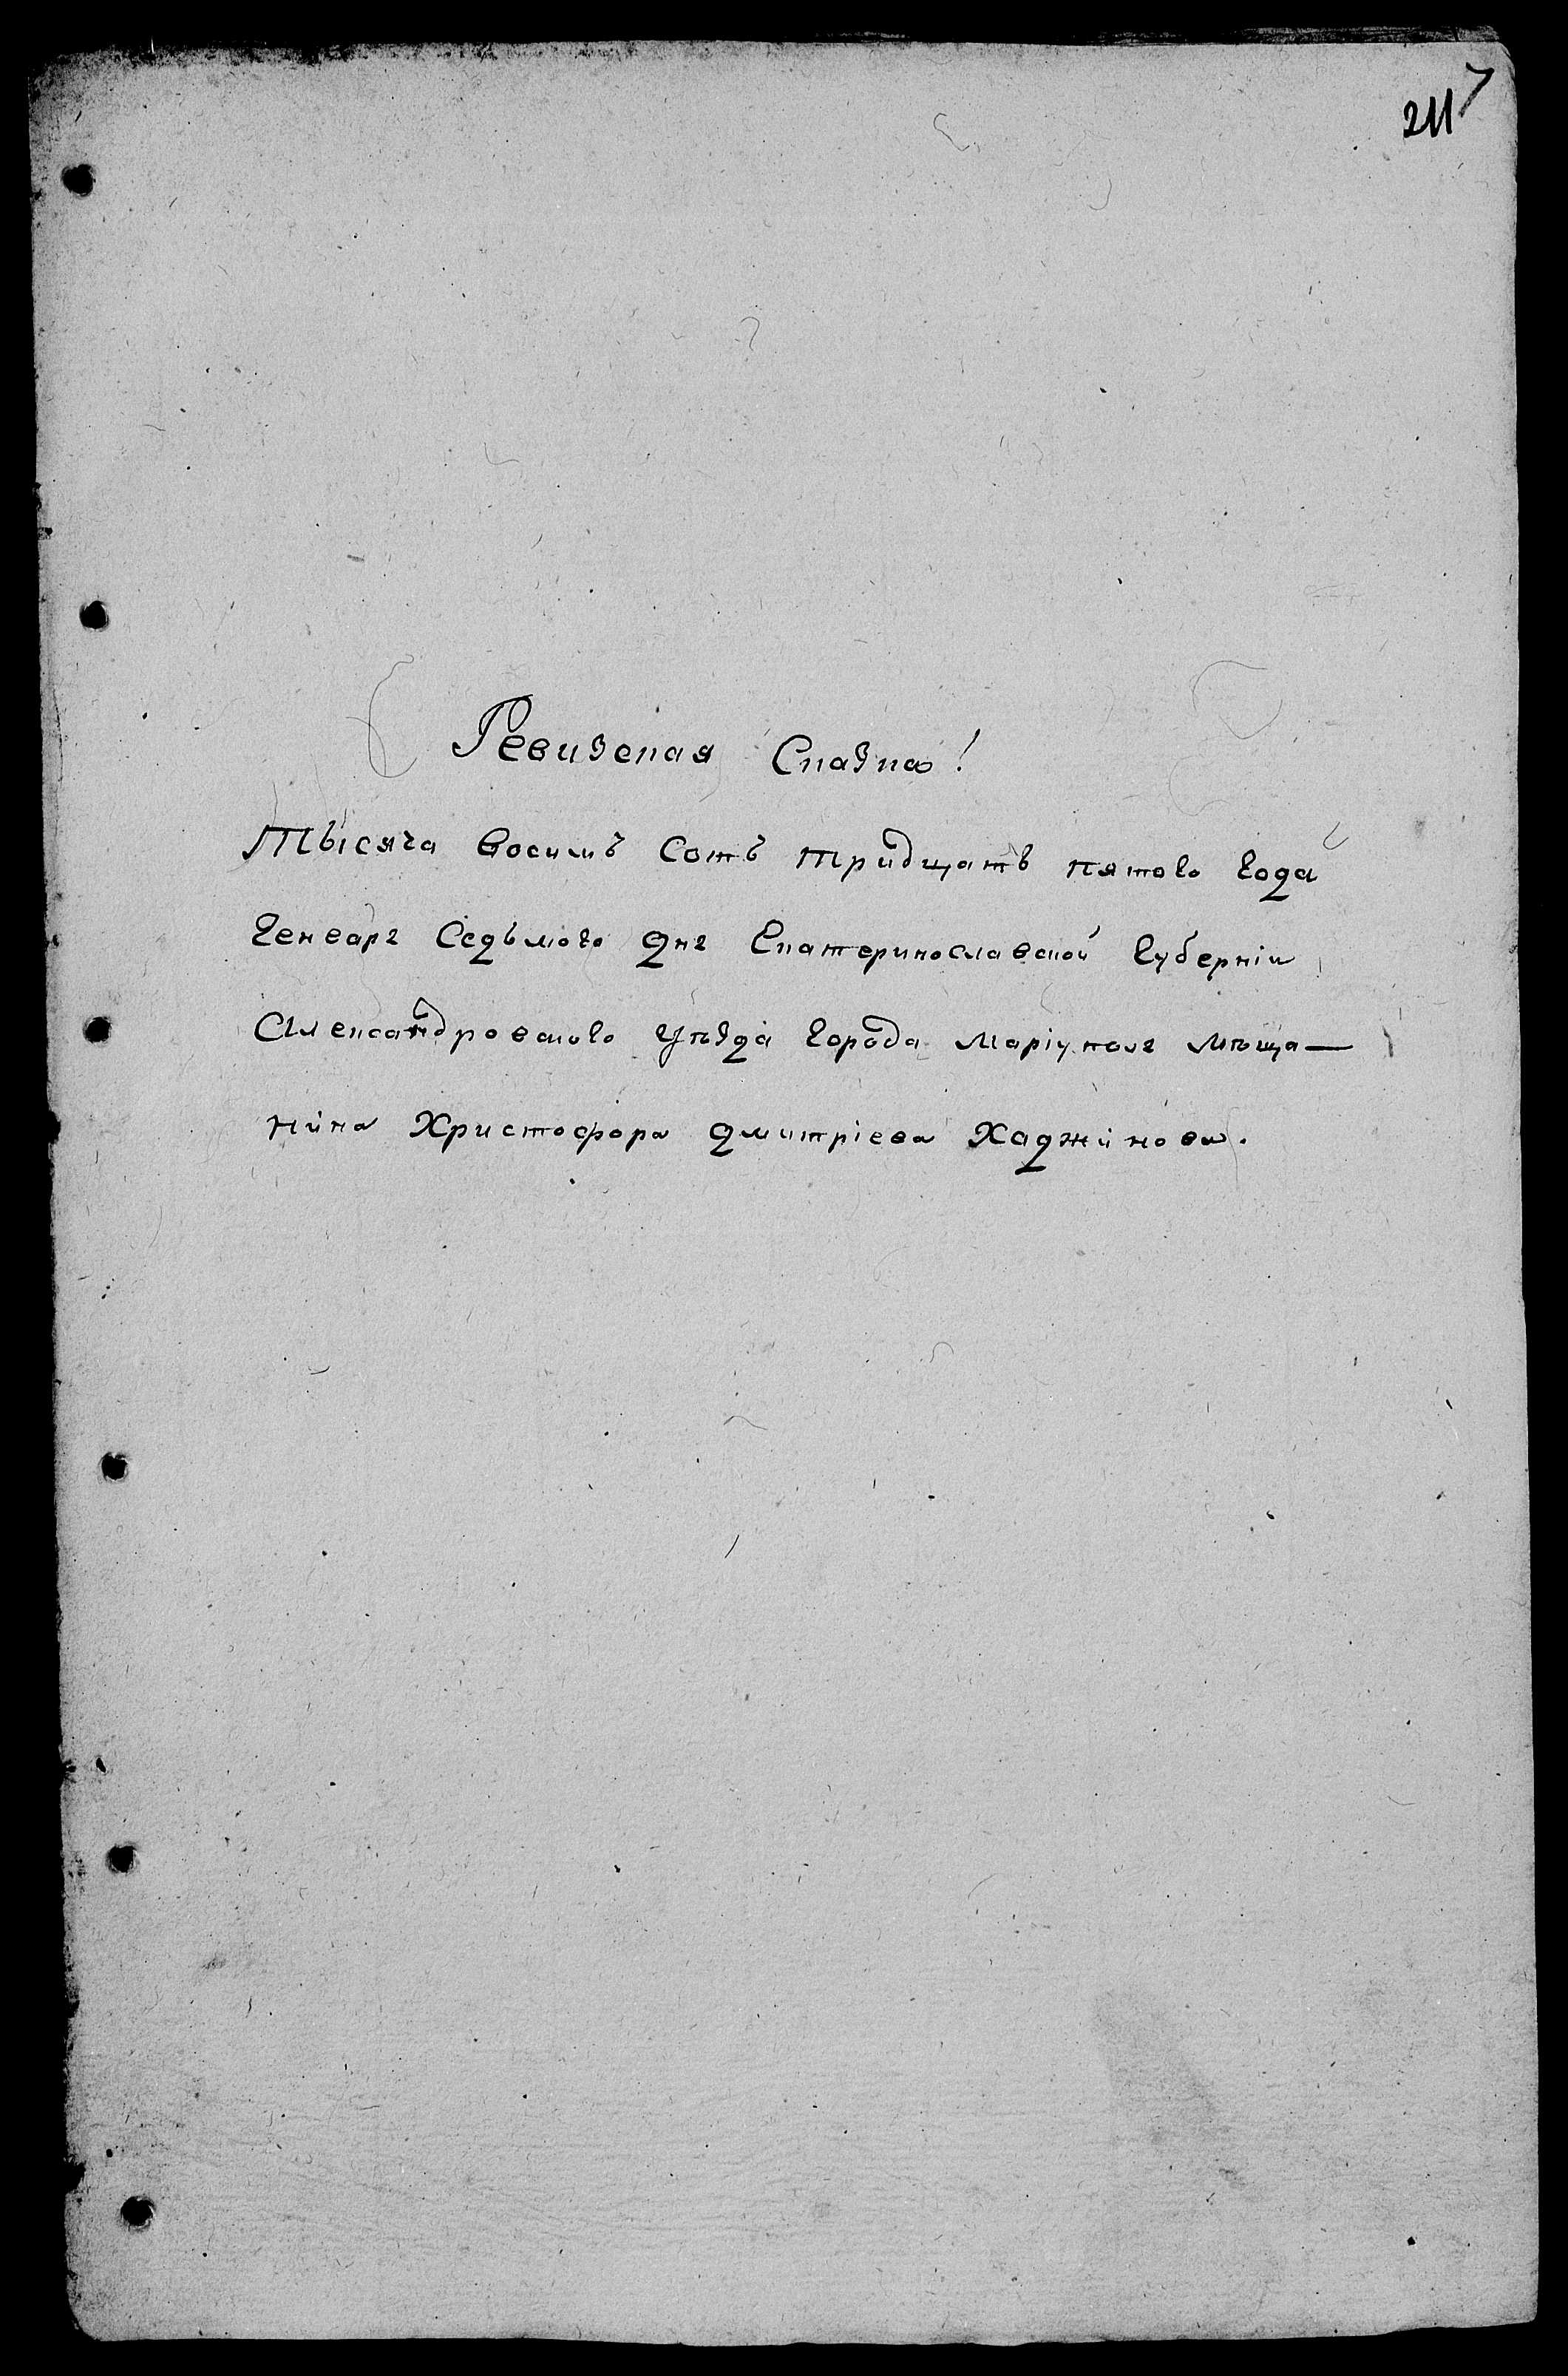 211
Ревизская Сказка!
Тысяча восимъ сотъ тридцатъ пятого года
Генваря Седьмого дня Екатеринославской Губерніи
Александровского уѣзда города Маріуполя мѣща—
нина Христофора Дмитріева Хаджинова.